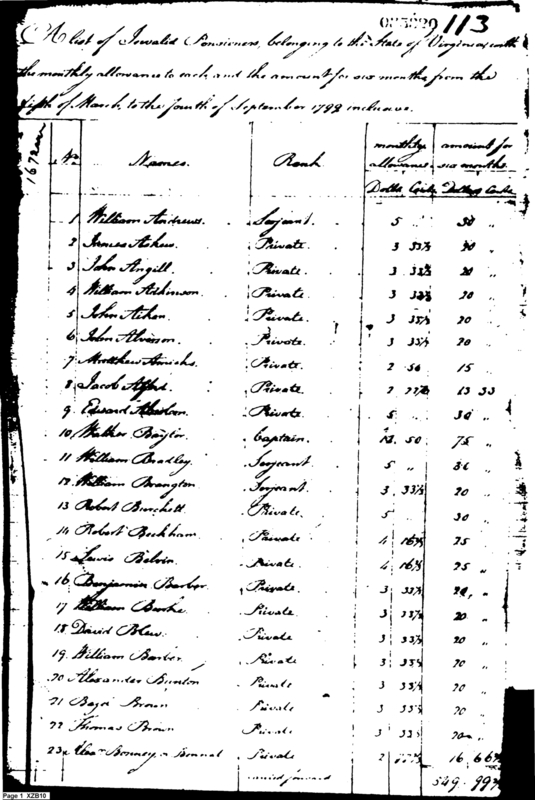 113
A list of Invalid Pensioners, belonging to the State of Virginia with
the monthly allowance to each and the amount for six months from the
fifth of March to the fourth of September 1792 inclusive.
No. Names. Rank monthly allowance amount for six months.
Dolls Cents Dollars Cents
1 William Andrews. Serjeant. 5 " 30 "
2 James Askew Private 3 33⅓ 20 "
3 John Angill. Private. 3 33⅓ 20 "
4 William Adkinson. Private. 3 33⅓ 20 "
5 John Aiken Private. 3 33⅓ 20 "
6 John Alvinson. Private. 3 33⅓ 20 "
7 Matthew Amicks. Private 2 50 15 "
8 Jacob Private 2 22⅓ 13 33
9 Edward Private 5 30 "
10 Walker Baylor Captain. 12 50 75 "
11 William Bradley Serjeant 5 " 30 "
12 William Brangton Serjeant 3 33⅓ 20 "
13 Robert Burchett Private 5 30 "
14 Robert Beckham Private 4 16⅔ 25 "
15 Lewis Belvin Private 4 16⅔ 25 "
16 Benjamin Barber Private 3 33⅓ 20 "
17 William Burke Private 3 33⅓ 20 "
18 David Blew Private 3 33⅓ 20 "
19. William Barber Private 3 33⅓ 20 "
20 Alexander Bunton Private 3 33⅓ 20 "
21 Brown Private 3 33⅓ 20 "
22 Thomas Brown Private 3 33⅓ 20 "
23 Bonney or Bonnal Private 2 77⅓ 16 66⅔
carried forward 549. 99⅔
Page 1 XZB10